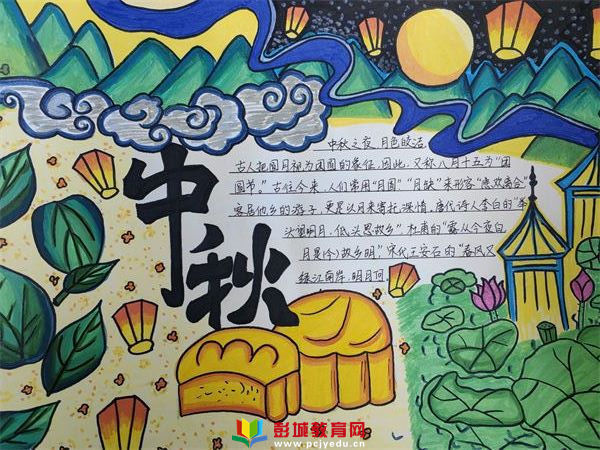 中秋
中秋之夜,月色皎洁
古人把圆月视为团圆的象征,因此,又称八月十五为"团
圆节。"古往今来,人们常用"月圆""月缺"来形容"悲欢离合"
客居他乡的游子,更是以月来寄托深情,唐代诗人李白的"举
头望明月,低头思故乡"杜甫的"露从今夜白
月是故乡明"宋代王安石的"春风又
绿江南岸,明月何
彭城教育网
www.pcjyedu.cn